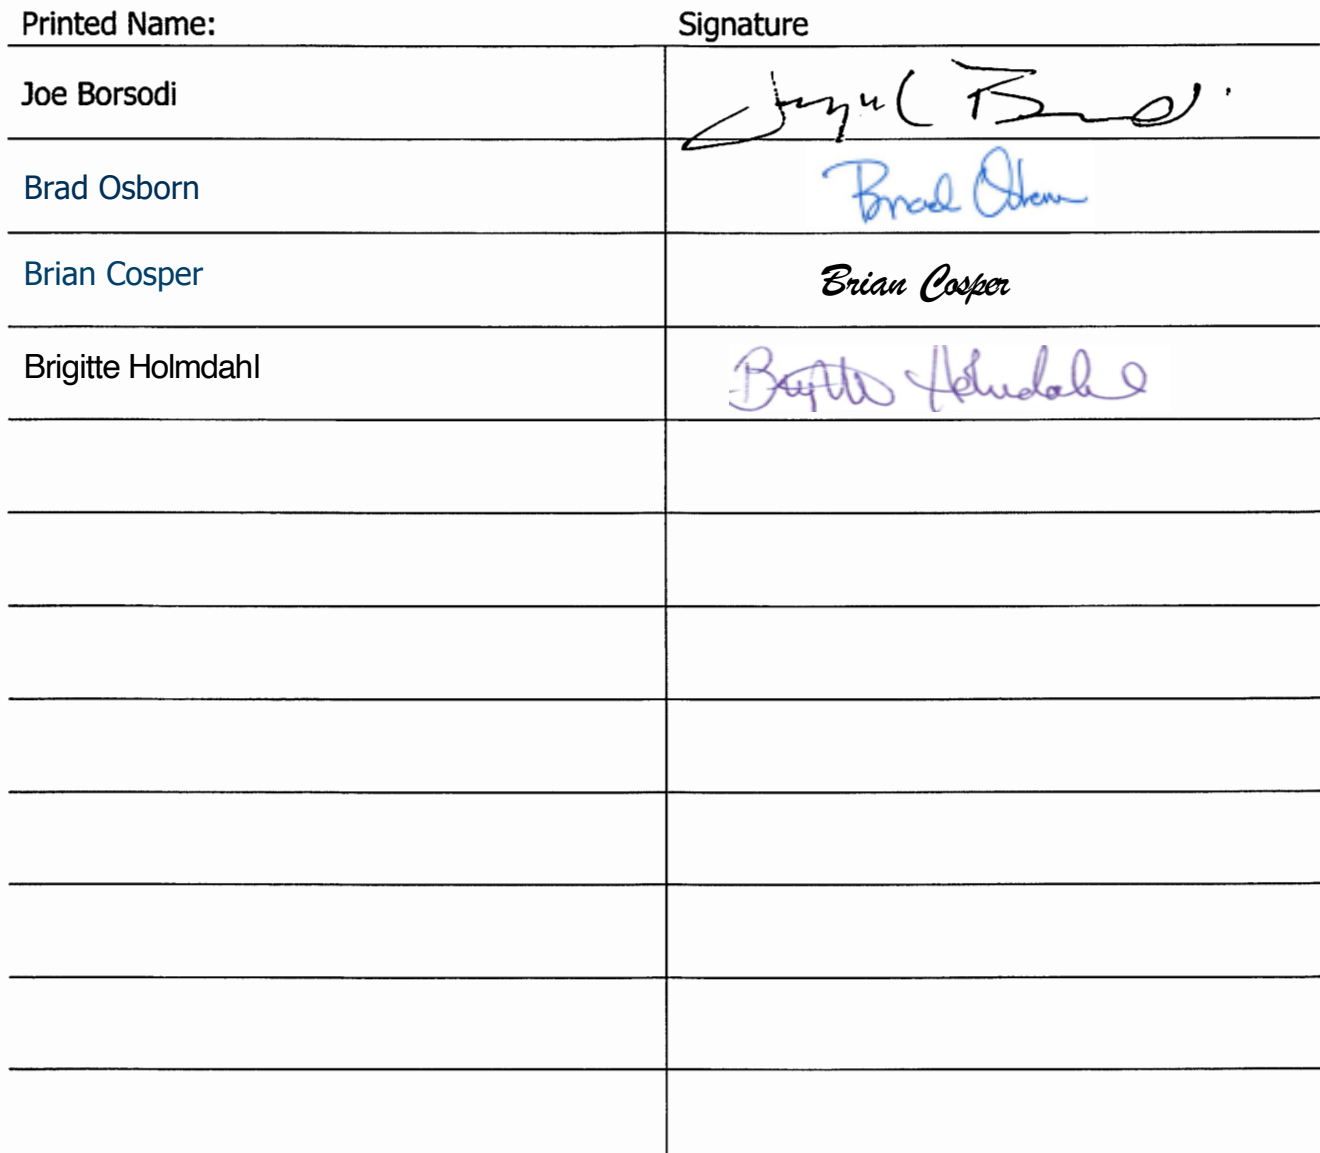 Printed Name: Signature
Joe Borsodi
Brad Osborn Brad Osborn
Brian Cosper Brian Cosper
Brigitte Holmdahl Brigitte Holmdahl